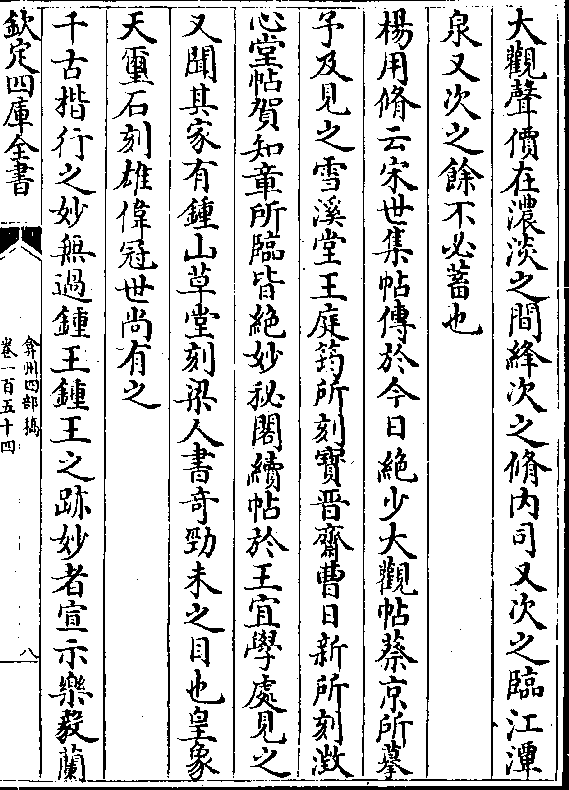 大觀聲價在濃淡之間絳次之脩内司又次之臨江潭
泉又次之餘不必蓄也
楊用脩云宋世集帖傳於今日絶少大觀帖蔡京所摹
予及見之雪溪堂王庭筠所刻寶晉齋曹日新所刻澂
心堂帖賀知章所臨皆絶妙秘閣續帖於王宜學處見之
又聞其家有鍾山草堂刻梁人書奇勁未之目也皇象
天璽石刻雄偉冠世尚有之
千古楷行之妙無過鍾王鍾王之跡妙者宣示樂毅蘭
欽定四庫全書
弇州四部稿
卷一百五十四
八